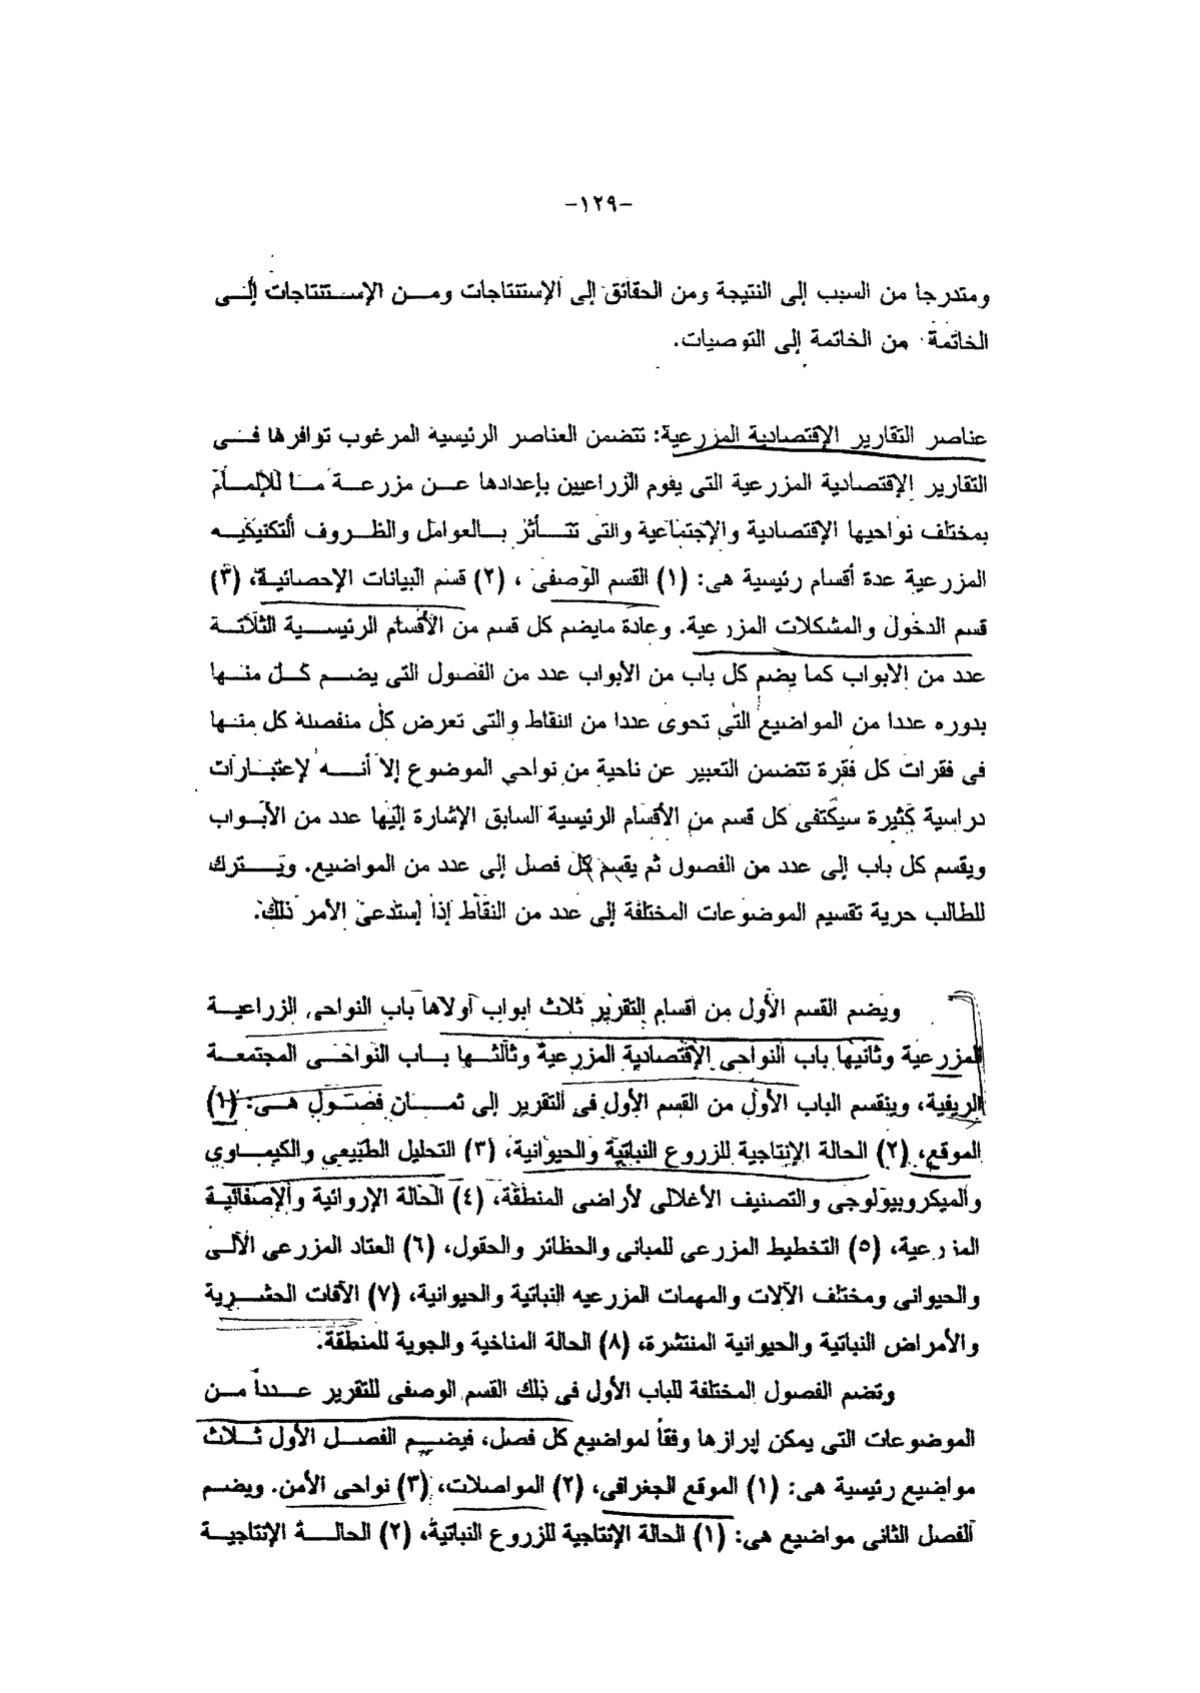 -١٢٩-
ومتدرجا من السبب إلى النتيجة ومن الحقائق إلى الإستنتاجات ومن الإستنتاجات إلى
الخاتمة من الخاتمة إلى التوصيات.
عناصر التقارير الإقتصادية المزرعية: تتضمن العناصر الرئيسية المرغوب توافرها فى
التقارير الإقتصادية المزرعية التى يقوم الزراعيين بإعدادها عن مزرعة ما للإلمام
بمختلف نواحيها الإقتصادية والإجتماعية والتى تتأثر بالعوامل والظروف التكنيكيه
المزرعية عدة أقسام رئيسية هى: (١) القسم الوصفى ، (٢) قسم البيانات الإحصائية، (٣)
قسم الدخول والمشكلات المزرعية. وعادة مايضم كل قسم من الأقسام الرئيسية الثلاثة
عدد من الابواب كما يضم كل باب من الأبواب عدد من الفصول التى يضم كل منها
بدوره عددا من المواضيع التى تحوى عددا من النقاط والتى تعرض كل منفصلة كل منها
فى فقرات كل فقرة تتضمن التعبير عن ناحية من نواحي الموضوع إلا أنه لإعتبارات
دراسية كثيرة سيكتفى كل قسم من الأقسام الرئيسية السابق الإشارة إليها عدد من الأبواب
ويقسم كل باب إلى عدد من الفصول ثم يقسم كل فصل إلى عدد من المواضيع. ويترك
للطالب حرية تقسيم الموضوعات المختلفة إلى عدد من النقاط إذا إستدعى الأمر ذلك.
ويضم القسم الأول من اقسام التقرير ثلاث ابواب أولاها باب النواحى الزراعية
المزرعية وثانيها باب النواحى الإقتصادية المزرعية وثالثها باب النواحى المجتمعة
الريفية، وينقسم الباب الأول من القسم الأول فى التقرير إلى ثمان فصول هى: (١)
الموقع، (٢) الحالة الإنتاجية للزروع النباتية والحيوانية، (٣) التحليل الطبيعي والكيماوى
والميكروبيولوجى والتصنيف الأغلالى لأراضى المنطقة، (٤) الحالة الإروائية والإصفائية
المزرعية، (٥) التخطيط المزرعى للمبانى والحظائر والحقول، (٦) العتاد المزرعى الآلى
والحيوانى ومختلف الآلات والمهمات المزرعيه النباتية والحيوانية، (٧) الآفات الحشرية
والأمراض النباتية والحيوانية المنتشرة، (٨) الحالة المناخية والجوية للمنطقة.
وتضم الفصول المختلفة للباب الأول فى ذلك القسم الوصفى للتقرير عدداً من
الموضوعات التى يمكن إبرازها وفقاً لمواضيع كل فصل، فيضم الفصل الأول ثلاث
مواضيع رئيسية هى: (١) الموقع الجغرافى، (٢) المواصلات، (٣) نواحى الأمن. ويضم
الفصل الثانى مواضيع هى: (١) الحالة الإنتاجية للزروع النباتية، (٢) الحالة الإنتاجية